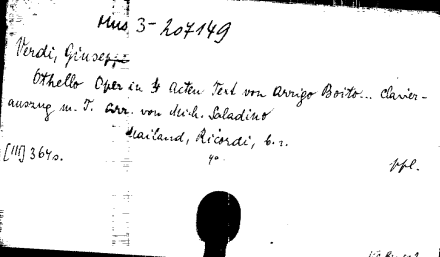 Mus 3-207149
Verdi, Giuseppe
Othello Oper in 4 Acten Text von Arrigo Boito... Clavier-
auszug m. T. arr. von Mich. Saladino
Mailand, Ricordi, b. r.
4o
[III] 364 s. ppl.